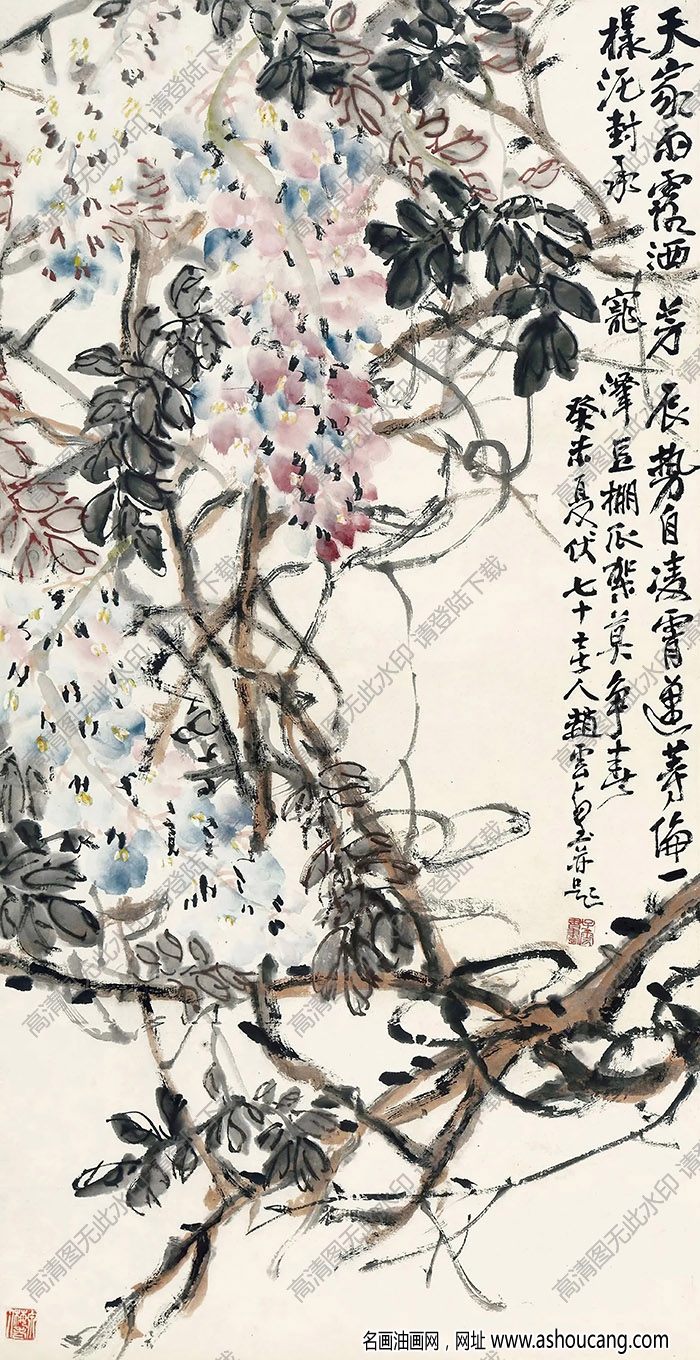 天家雨露洒芳辰勢自凌霄邁等倫一
樣泥封承寵澤豆棚瓜架莫爭春
癸未夏伏七十老人趙雲壑并題
高清图无此水印 请登陆下载
名画油画网，网址 www.ashoucang.com